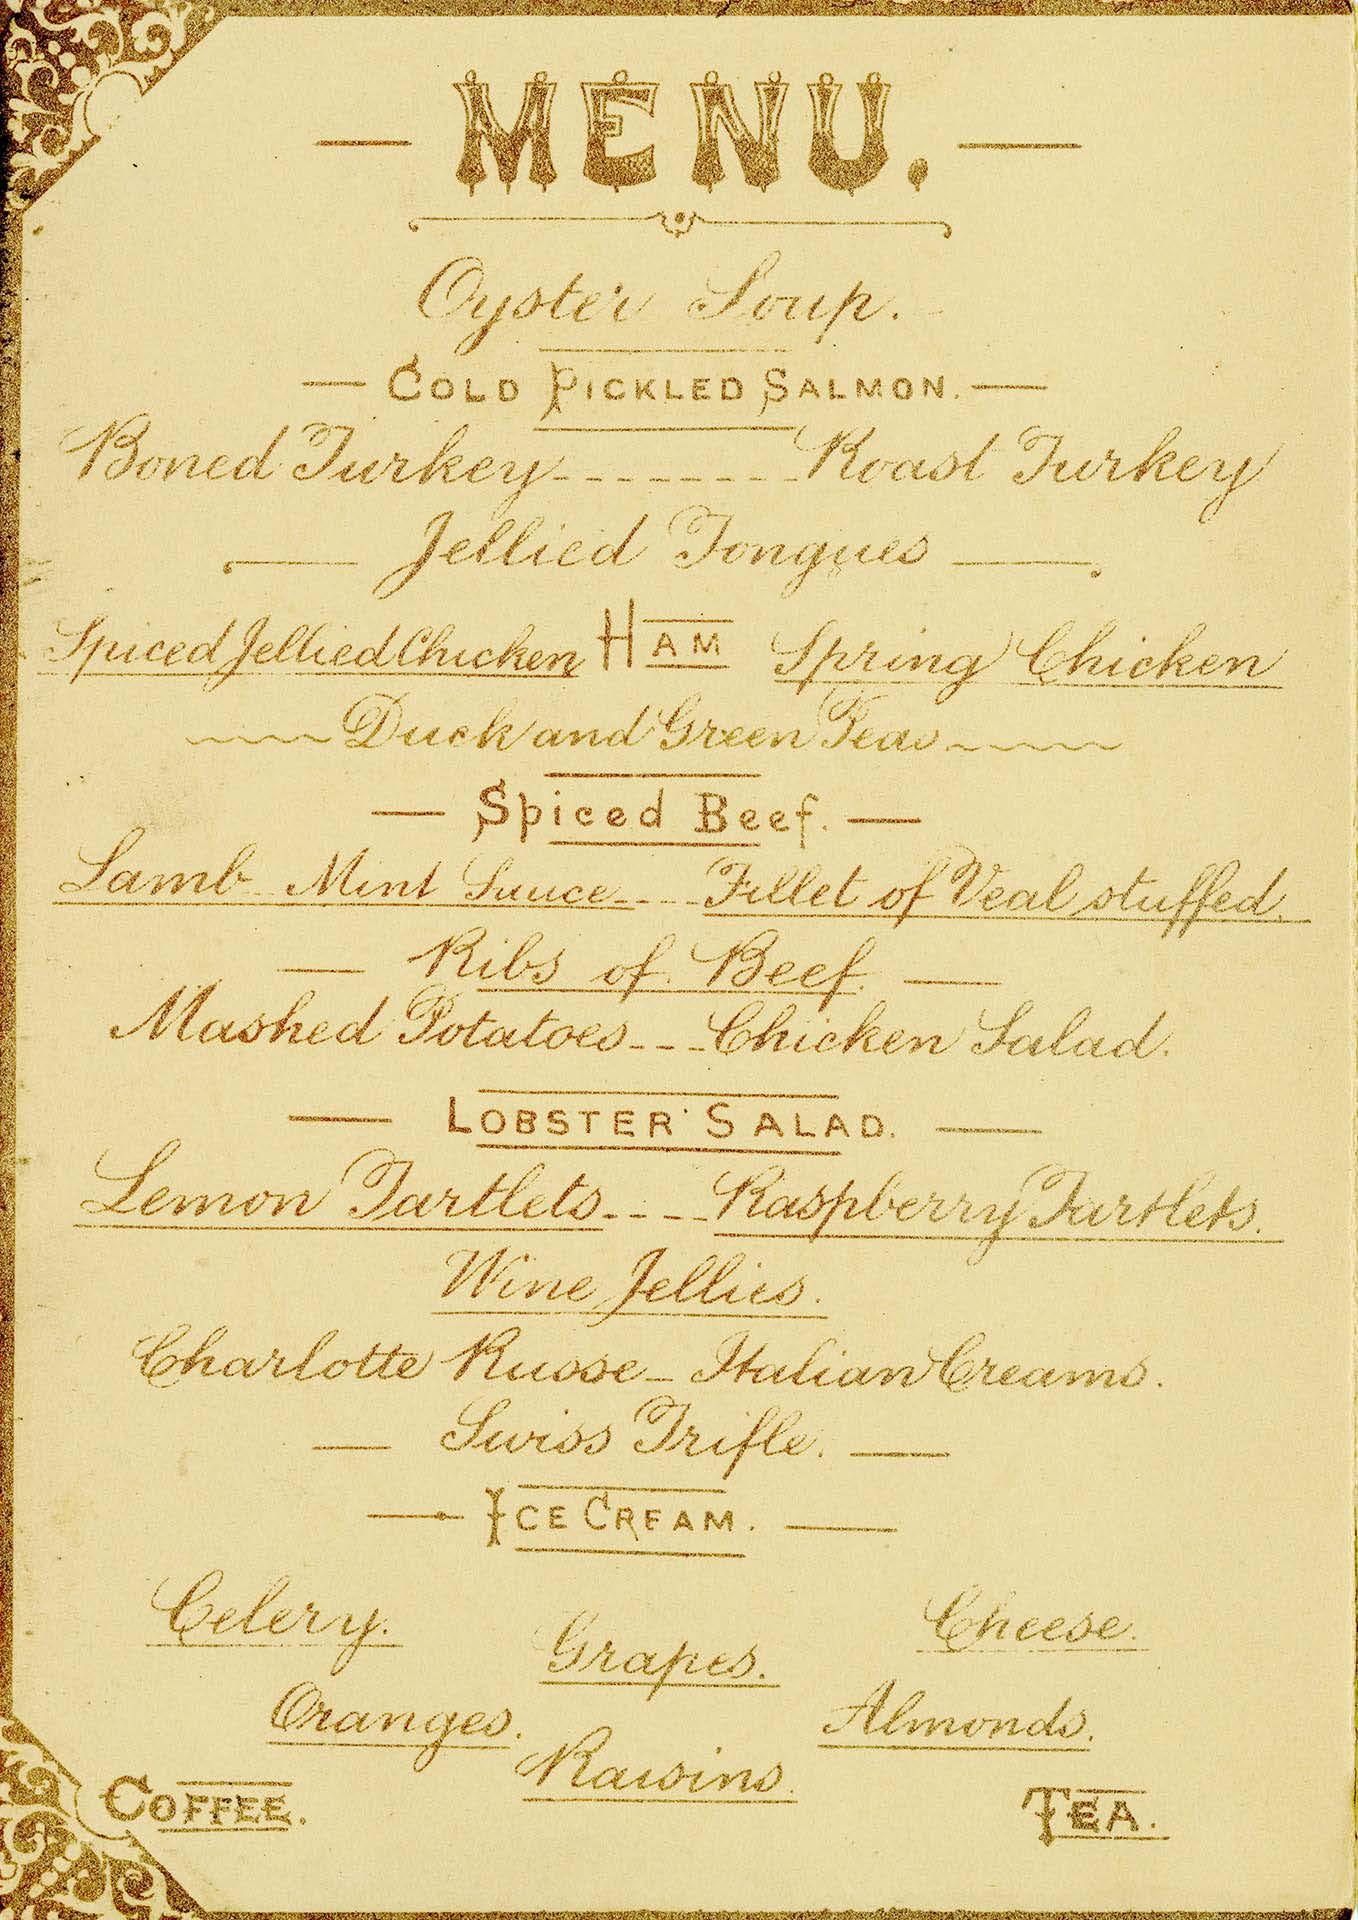 MENU.
Oyster Soup.
COLD PICKLED SALMON.
Boned Turkey Roast Turkey
Jellied Tongues
Spiced Jellied Chicken HAM Spring Chicken
Duck and Green Peas
Spiced Beef.
Lamb Mint Sauce Fillet of Veal stuffed.
Ribs of Beef.
Mashed Potatoes Chicken Salad.
LOBSTER SALAD.
Lemon Tartlets Raspberry Tartlets.
Wine Jellies.
Charlotte Russe - Italian Creams.
Swiss Trifle.
ICE CREAM.
Celery. Grapes. Cheese.
Oranges. Raisins. Almonds.
COFFEE. TEA.